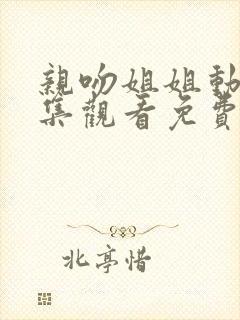 親吻姐姐動
集觀看免費
北亭惜